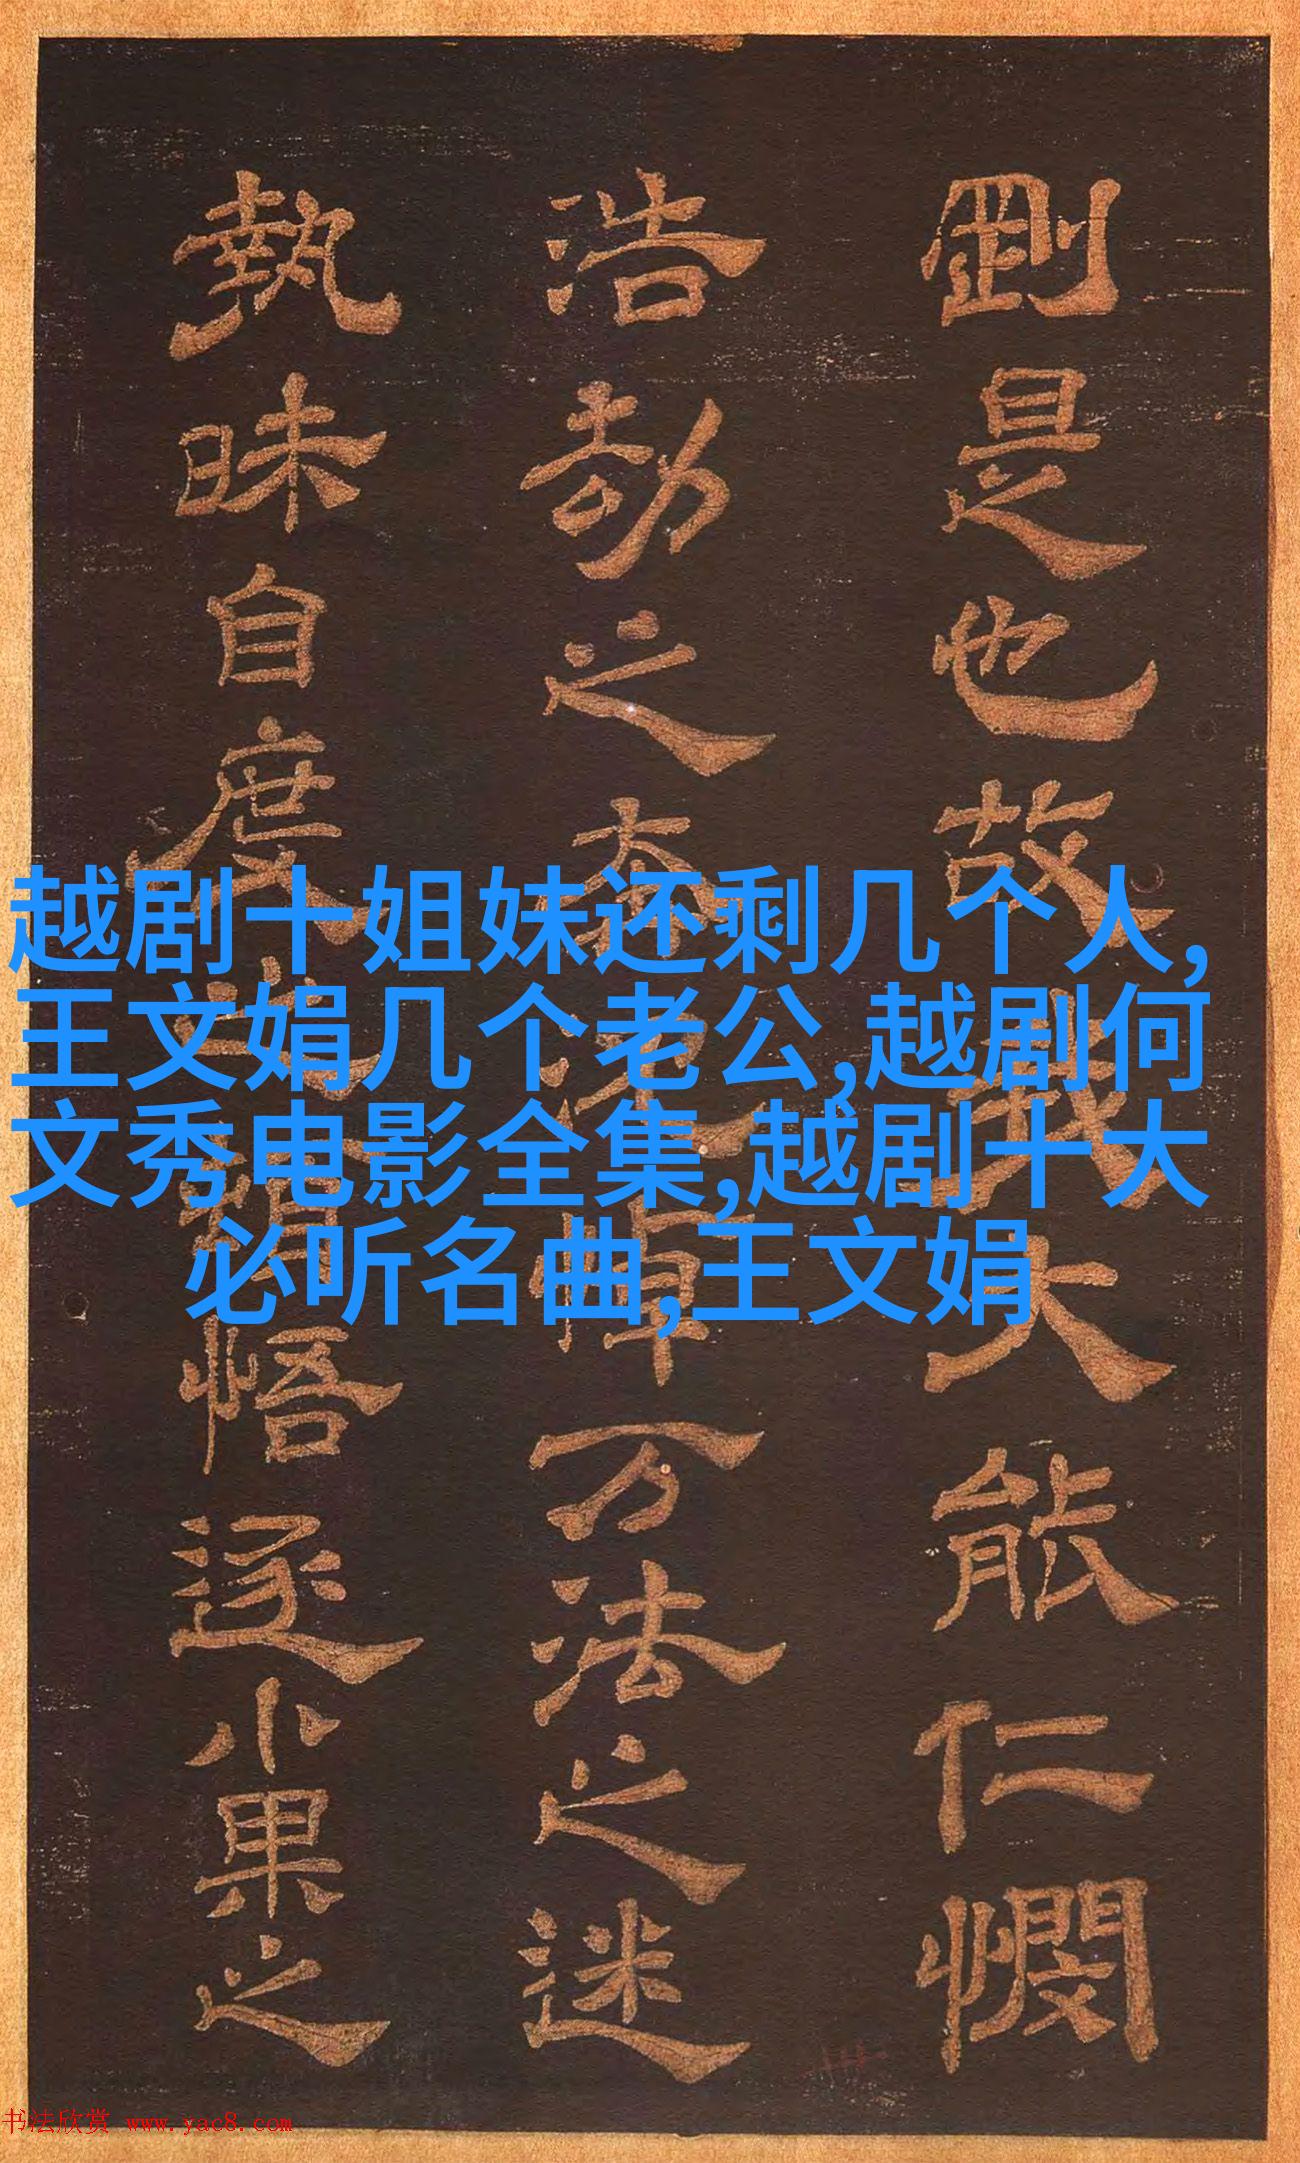 剛是也故我大能仁憫
浩劫之悼万法之迷
執昧自度悟逐小果之
越剧十姐妹还剩几个人,
王文娟几个老公,越剧何
文秀电影全集,越剧十大
必听名曲,王文娟
书法欣赏 www.yac8.com